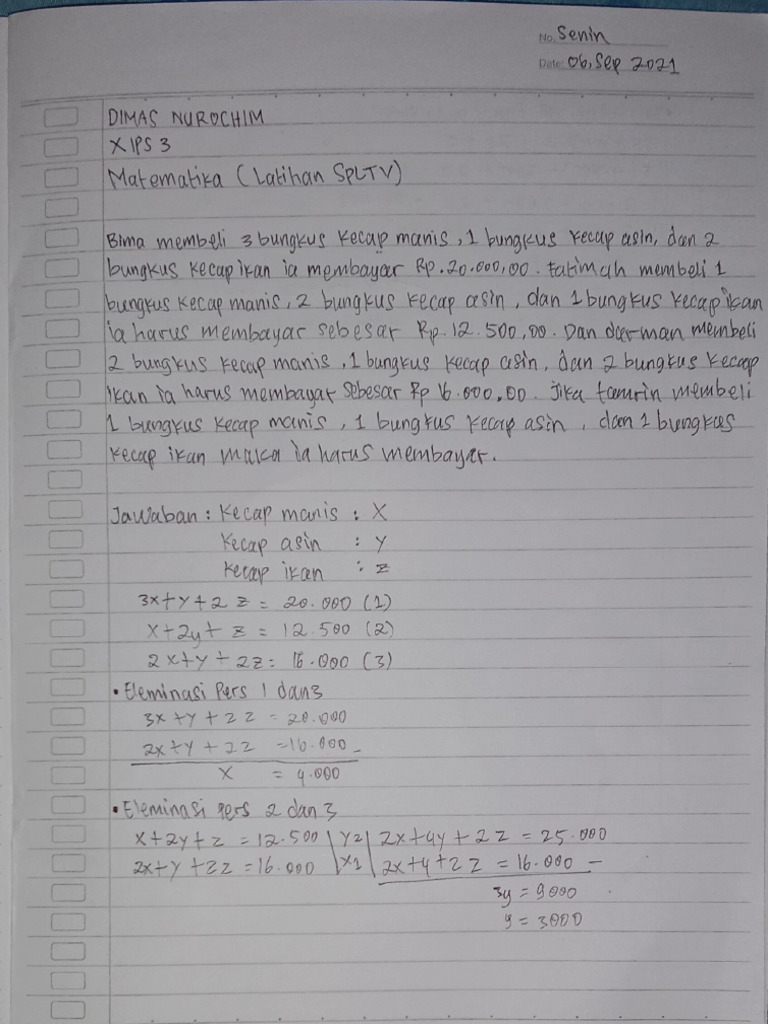 No. Senin
Date: 06, Sep 2021
DIMAS NUROCHIM
X IPS 3
Matematika (Latihan SPLTV)
Bima membeli 3 bungkus kecap manis, 1 bungkus kecap asin, dan 2
bungkus kecap ikan ia membayar Rp. 20.000,00. fatimah membeli 1
bungkus kecap manis, 2 bungkus kecap asin, dan 1 bungkus kecap ikan
ia harus membayar sebesar Rp. 12.500,00. Dan darman membeli
2 bungkus kecap manis, 1 bungkus kecap asin, dan 2 bungkus kecap
ikan ia harus membayar sebesar Rp 16.000,00. Jika tamrin membeli
1 bungkus kecap manis, 1 bungkus kecap asin, dan 1 bungkus
kecap ikan maka ia harus membayar.
Jawaban : kecap manis : X
kecap asin : Y
kecap ikan : z
3x+y+2z = 20.000 (1)
x+2y+z = 12.500 (2)
2x+y+2z = 16.000 (3)
• Eleminasi Pers 1 dan 3
3x+y+2z = 20.000
2x+y+2z = 16.000 -
x = 4.000
• Eleminasi pers 2 dan 3
x+2y+z = 12.500 | x2 | 2x+4y+2z = 25.000
2x+y+2z = 16.000 | x1 | 2x+y+2z = 16.000 -
3y = 9000
y = 3000